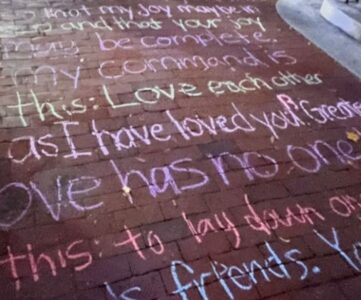 that my joy may be in
and that your joy
may be complete.
my command is
this: Love each other
as I have loved you. Great
ove has no one
this: to lay down on
friends. Yo